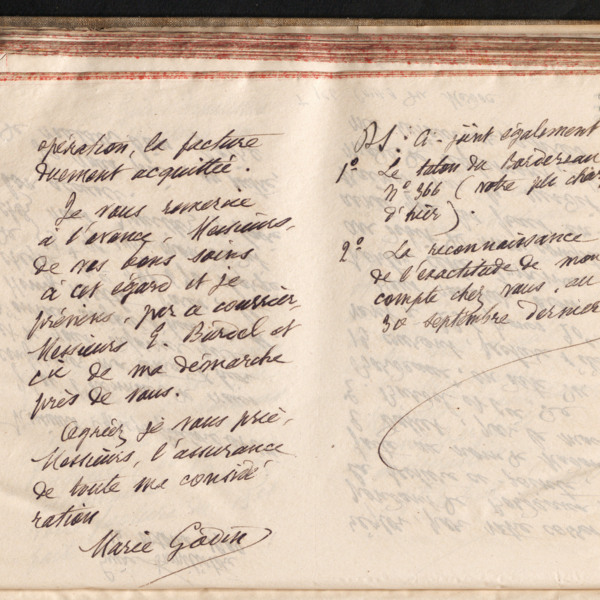 opération, la facture
duement acquittée.
Je vous remercie
à l'avance, Messieurs,
de vos bons soins
à cet égard et je
préviens, par ce courrier,
Messieurs E. Burdel et
Cie de ma démarche
près de vous.
Agréez je vous prie,
Messieurs, l'assurance
de toute ma considé
ration
Marie Godin
PS. Ci-joint également
1º Le talon du Bordereau
Nº 366 (votre pli chargé
d'hier).
2º La reconnaissance
de l'exactitude de mon
compte chez vous, au
30 septembre dernier